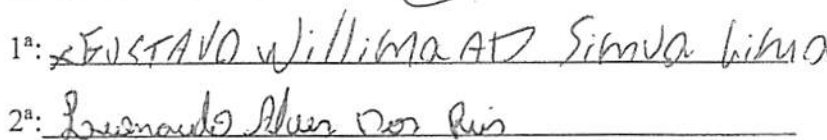 1ª: xGUSTAVO Willima AD Simva Limo
2ª: Alves Dos Reis